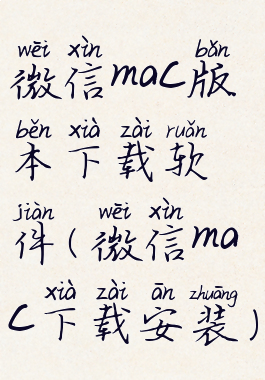 wēi xìn bǎn
微信mac版
běn xià zài ruǎn
本下载软
jiàn wēi xìn
件(微信ma
xià zài ān zhuāng
c下载安装)